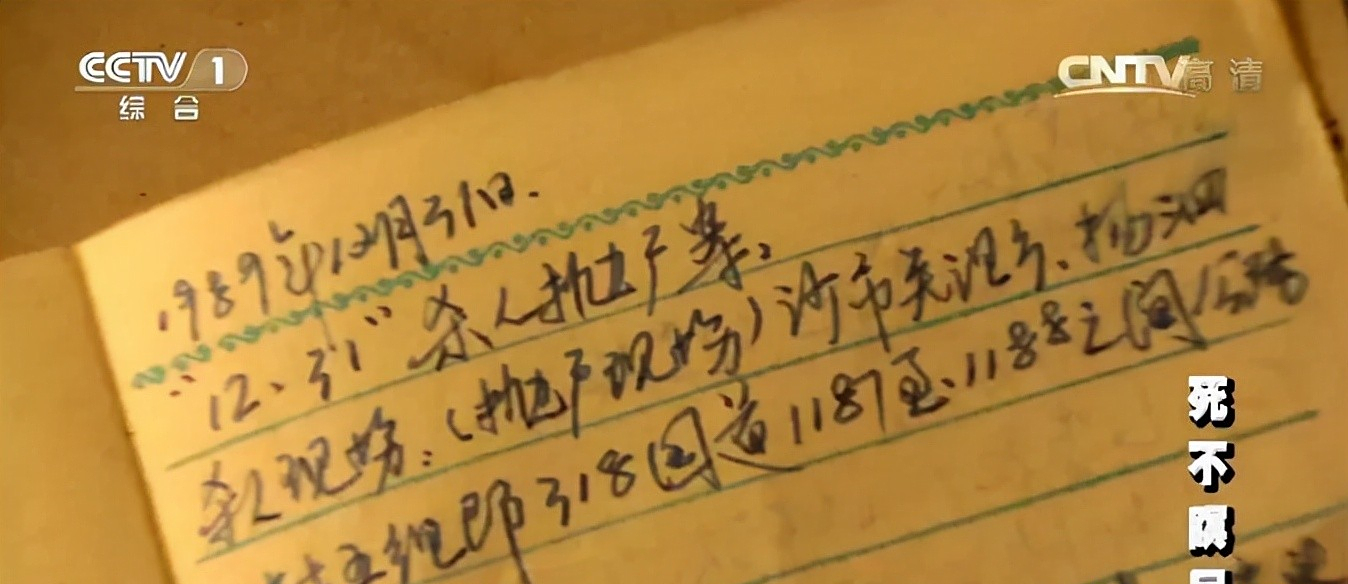 CCTV 1
综合
CNTV 高清
1989年12月31日.
"12.31"杀人抛尸案,
杀人现场:(抛尸现场)沙市关沮乡、
五组即318国道1187至1188之间公路
死不瞑目